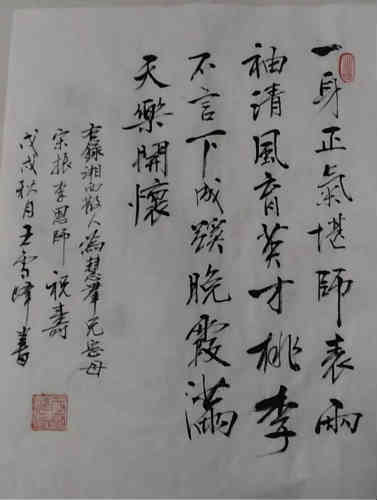 一身正氣堪師表兩
袖清風育英才桃李
不言下成蹊晚霞滿
天樂開懷
右錄湘西散人為慧群兄岳母
宋振李恩師祝壽
戊戌秋月王雪峰書